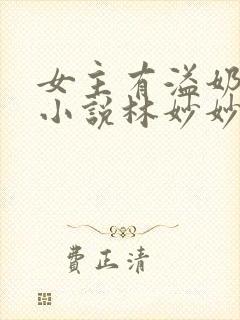 女主有溢奶
小说林妙妙
费正清